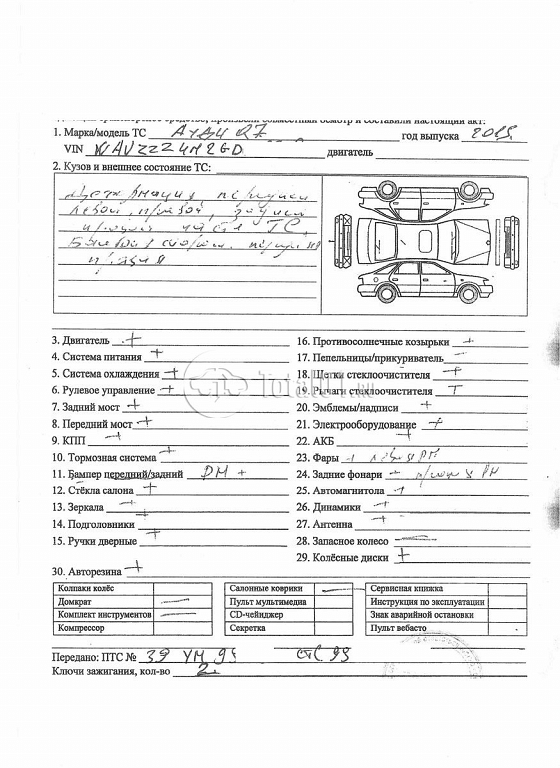 1. Марка/модель ТС АУДИ Q7 год выпуска 2015
VIN WAUZZZ4M2GD двигатель
2. Кузов и внешнее состояние ТС:
левой, правой, задней
правой части ТС,
3. Двигатель +
4. Система питания +
5. Система охлаждения +
6. Рулевое управление +
7. Задний мост +
8. Передний мост +
9. КПП +
10. Тормозная система +
11. Бампер передний/задний РМ +
12. Стёкла салона +
13. Зеркала +
14. Подголовники +
15. Ручки дверные +
16. Противосолнечные козырьки +
17. Пепельницы/прикуриватель
18. Щетки стеклоочистителя +
19. Рычаги стеклоочистителя
20. Эмблемы/надписи +
21. Электрооборудование +
22. АКБ +
23. Фары левая РМ
24. Задние фонари РМ
25. Автомагнитола +
26. Динамики +
27. Антенна +
28. Запасное колесо —
29. Колёсные диски +
30. Авторезина +
Колпаки колёс
Домкрат —
Комплект инструментов —
Компрессор
Салонные коврики —
Пульт мультимедиа
CD-чейнджер
Секретка
Сервисная книжка
Инструкция по эксплуатации
Знак аварийной остановки
Пульт вебасто
Передано: ПТС № 39 УМ 95 СТС 99
Ключи зажигания, кол-во 2
Total01.ru